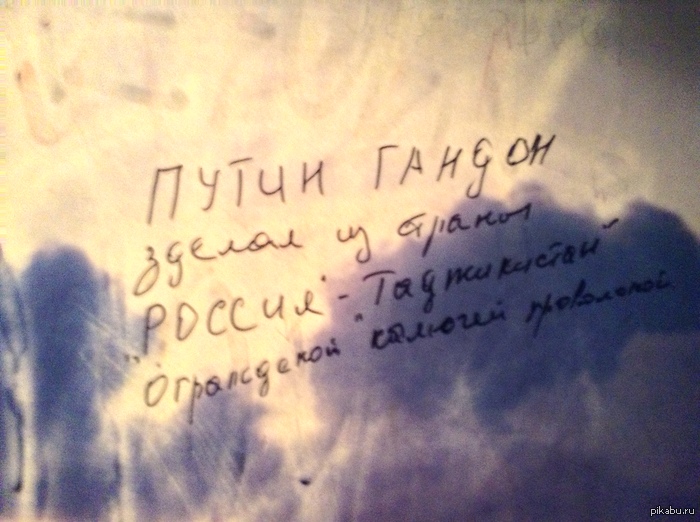 ПУТИН ГАНДОН
зделал из страны
РОССИЯ - Таджикистан"
"Огражденой "калючей проволокой
pikabu.ru